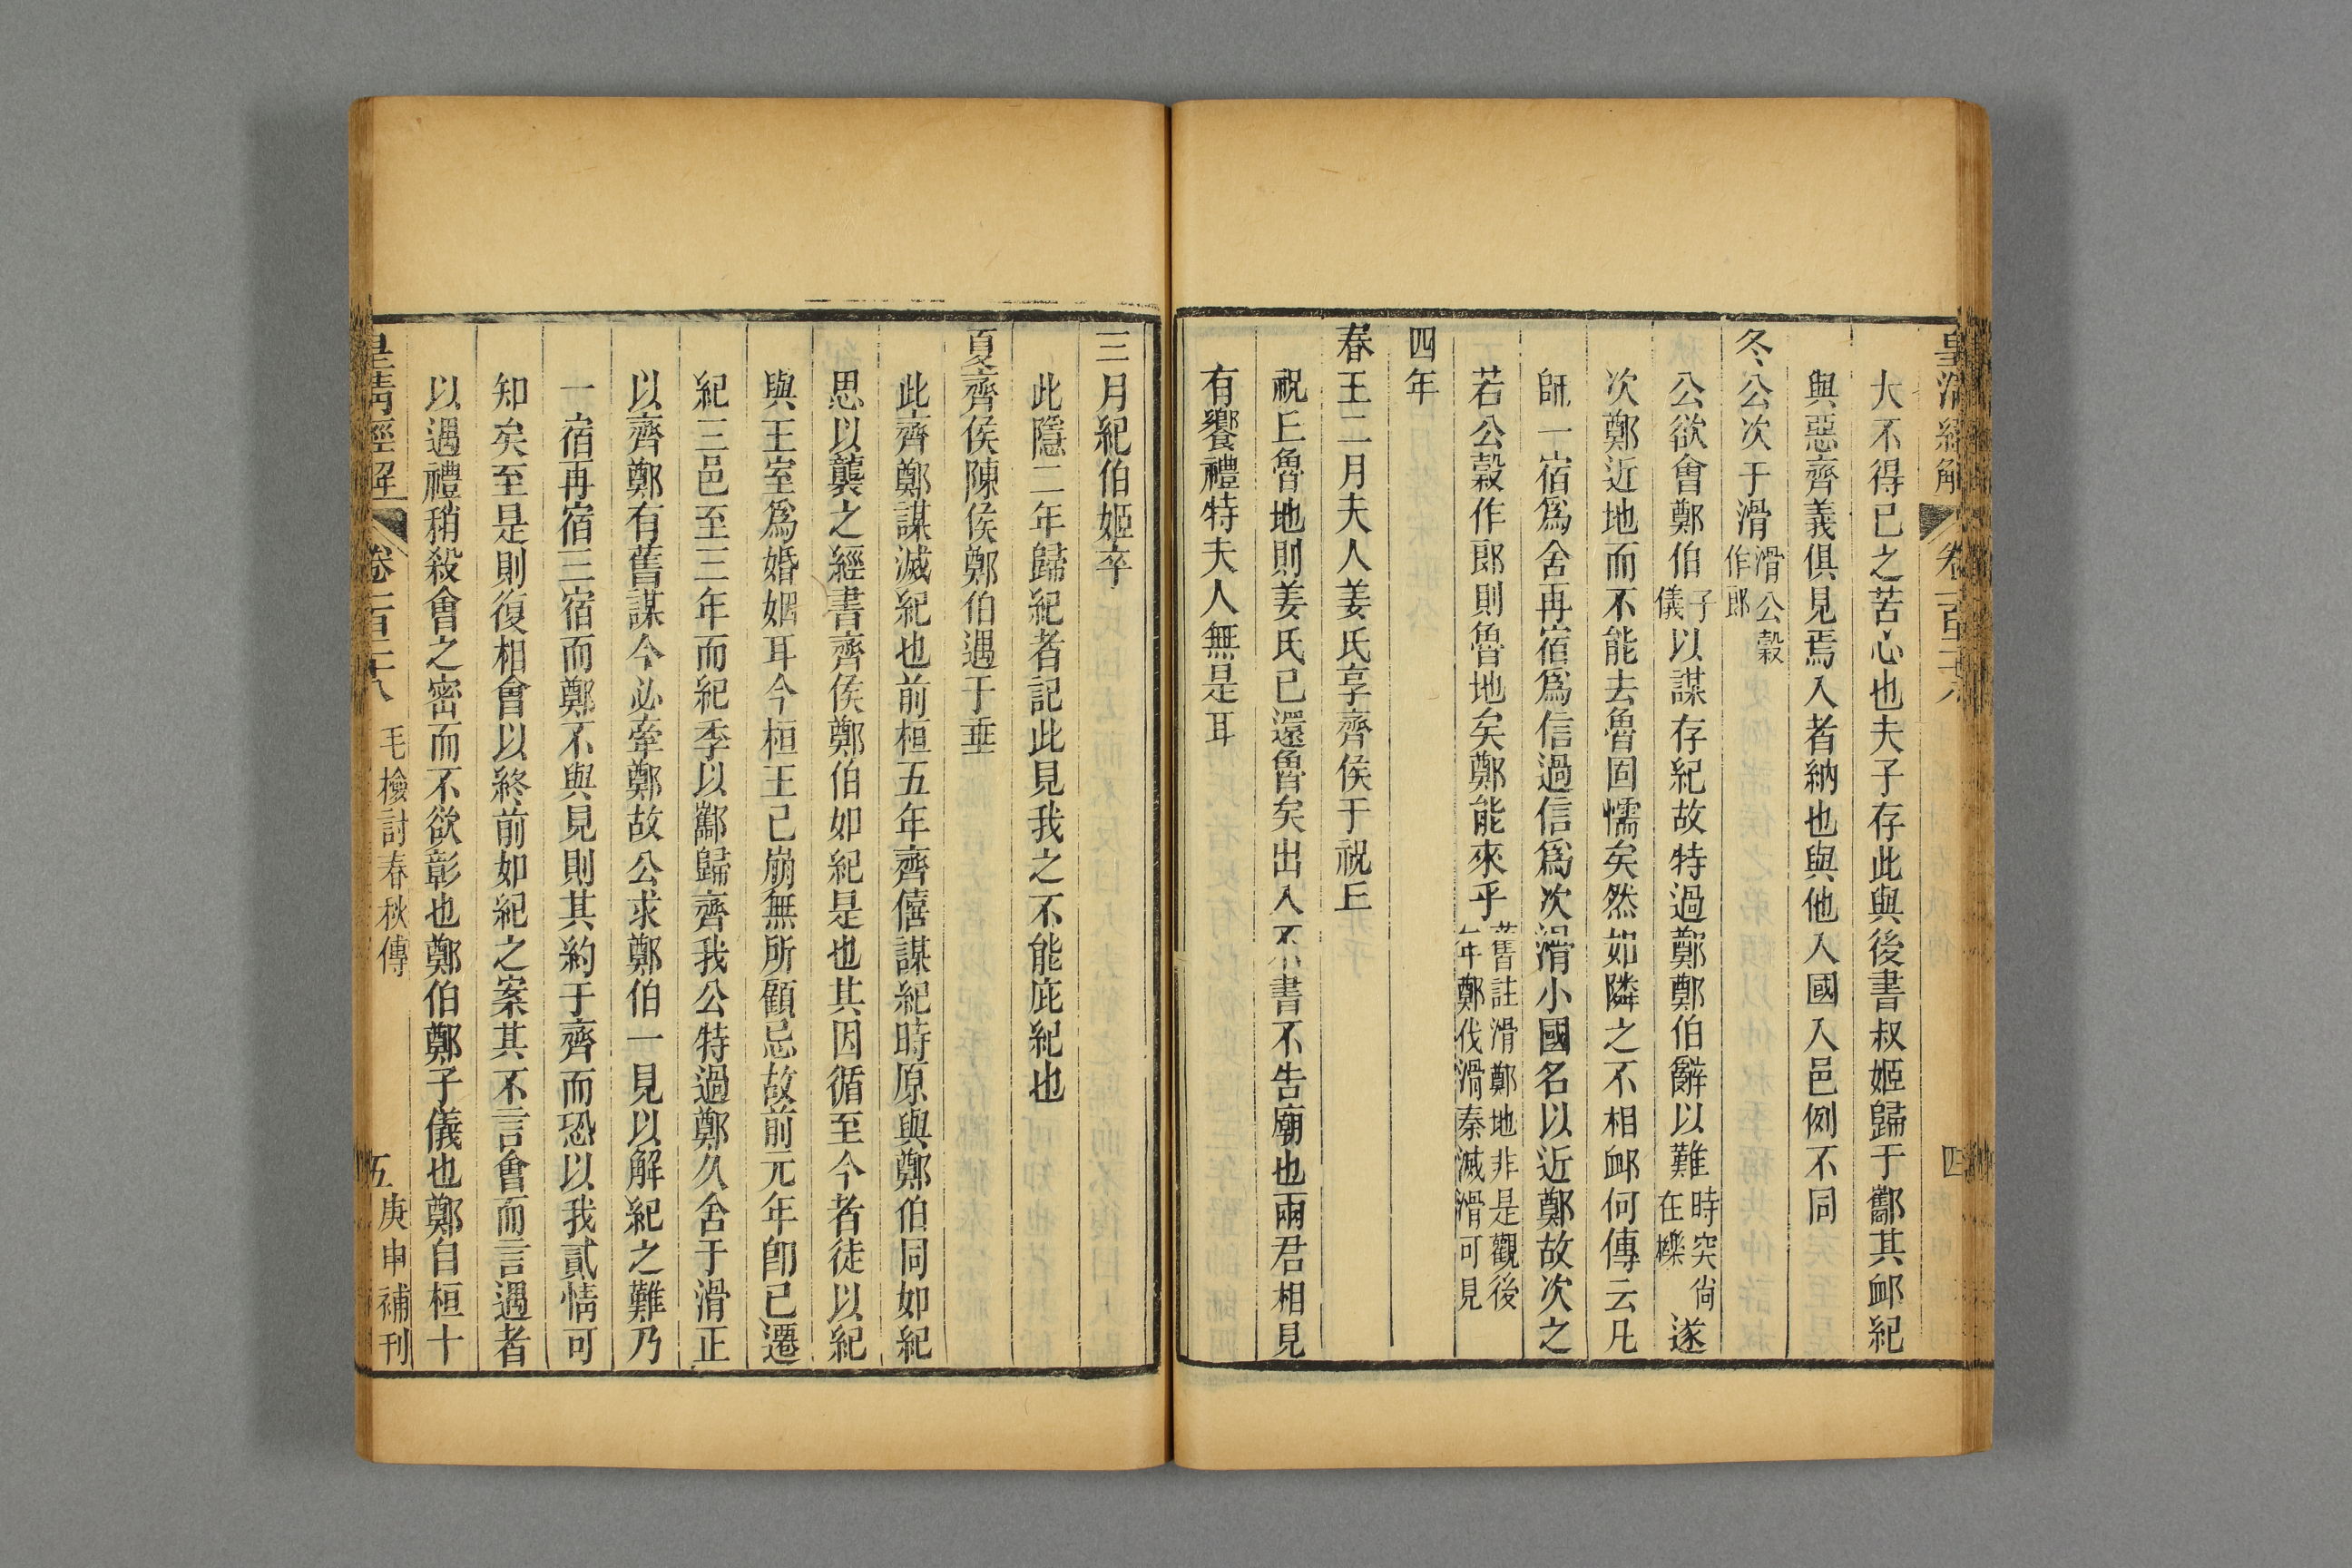 皇清經解 卷一百二十八 四
大不得已之苦心也夫子存此與後書叔姬歸于酅其䘏紀
與惡齊義俱見焉入者納也與他入國入邑例不同
冬公次于滑滑公穀作郎
公欲會鄭伯子儀以謀存紀故特過鄭鄭伯辭以難時突尚在櫟遂
次鄭近地而不能去魯固懦矣然如隣之不相䘏何傳云凡
師一宿爲舍再宿爲信過信爲次滑小國名以近鄭故次之
若公穀作郎則魯地矣鄭能來乎舊註滑鄭地非是觀後年鄭伐滑秦滅滑可見
四年
春王二月夫人姜氏享齊侯于祝丘
祝丘魯地則姜氏已還魯矣出入不書不告廟也兩君相見
有饗禮特夫人無是耳
三月紀伯姬卒
此隱二年歸紀者記此見我之不能庇紀也
夏齊侯陳侯鄭伯遇于垂
此齊鄭謀滅紀也前桓五年齊僖謀紀時原與鄭伯同如紀
思以襲之經書齊侯鄭伯如紀是也其因循至今者徒以紀
與王室爲婚姻耳今桓王已崩無所顧忌故前元年卽已遷
紀三邑至三年而紀季以酅歸齊我公特過鄭久舍于滑正
以齊鄭有舊謀今必牽鄭故公求鄭伯一見以解紀之難乃
一宿再宿三宿而鄭不與見則其約于齊而恐以我貳情可
知矣至是則復相會以終前如紀之案其不言會而言遇者
以遇禮稍殺會之密而不欲彰也鄭伯鄭子儀也鄭自桓十
皇清經解 卷一百二十八 毛檢討春秋傳 五 庚申補刊